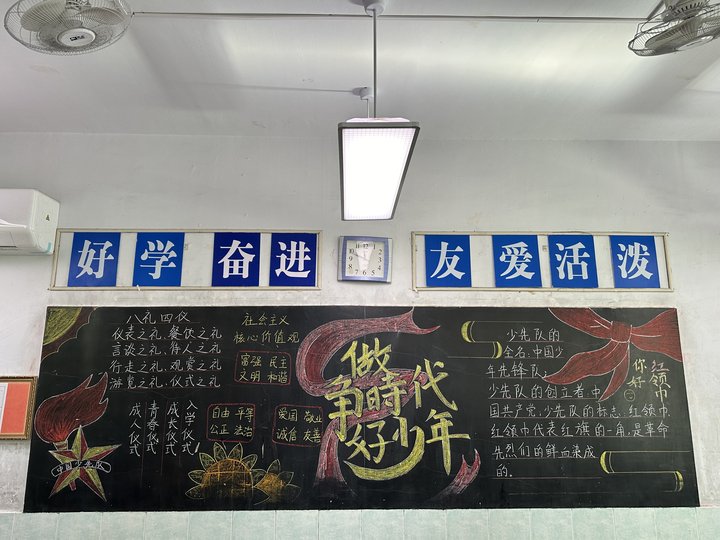 好学 奋进
友爱活泼
八礼四仪
仪表之礼、餐饮之礼
言谈之礼、待人之礼
行走之礼、观赏之礼
游览之礼、仪式之礼
入学仪式
成长仪式
青春仪式
成人仪式
中国少先队
社会主义
核心价值观
富强 民主
文明 和谐
自由 平等
公正 法治
爱国 敬业
诚信 友善
做
争时代
好少年
少先队的
全名:中国少
年先锋队;
少先队的创立者:中
国共产党;少先队的标志:红领巾
红领巾代表红旗的一角,是革命
先烈们的鲜血染成
的。
红领巾
你好